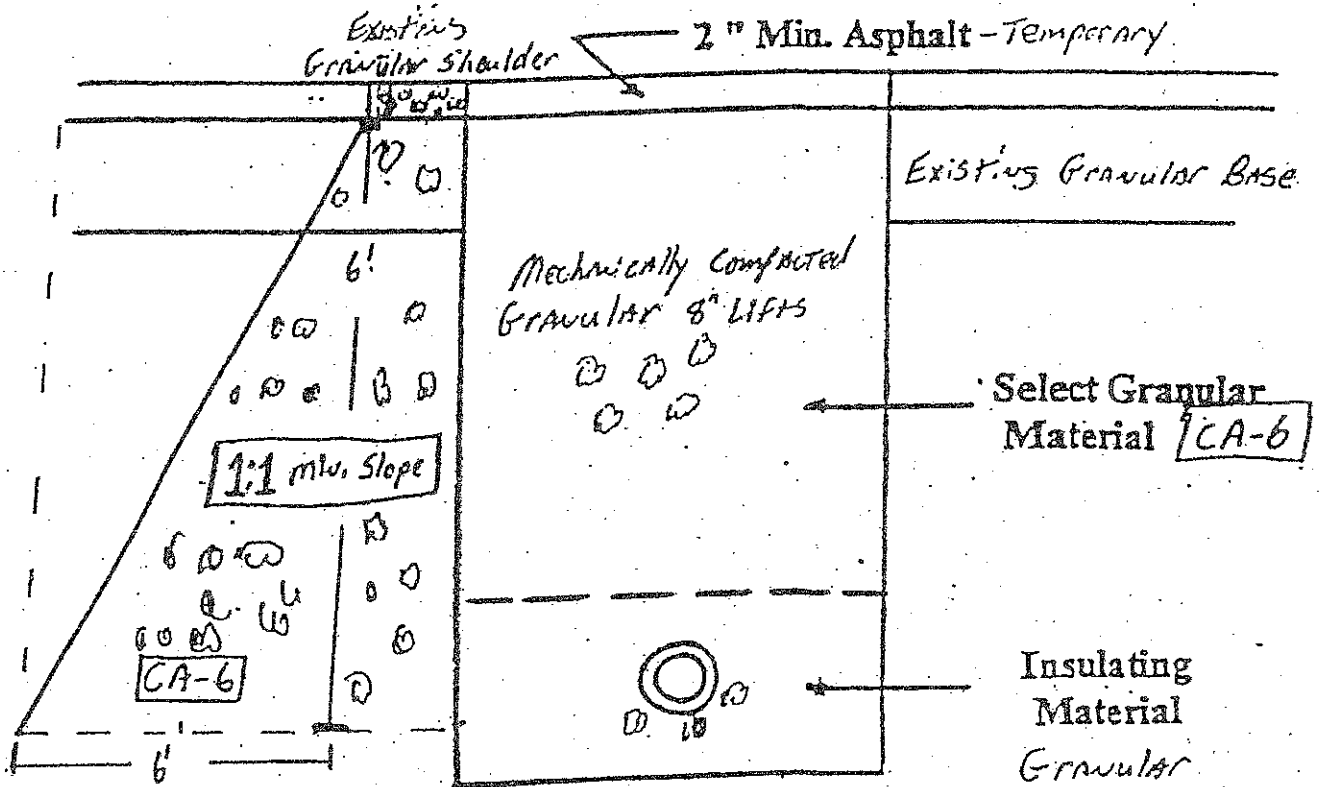 Existing
Granular Shoulder
2" Min. Asphalt - Temporary
Existing Granular Base
6'
Mechnically Compacted
Granular 8" Lifts
Select Granular
Material CA-6
1:1 min. Slope
CA-6
Insulating
Material
Granular
6'